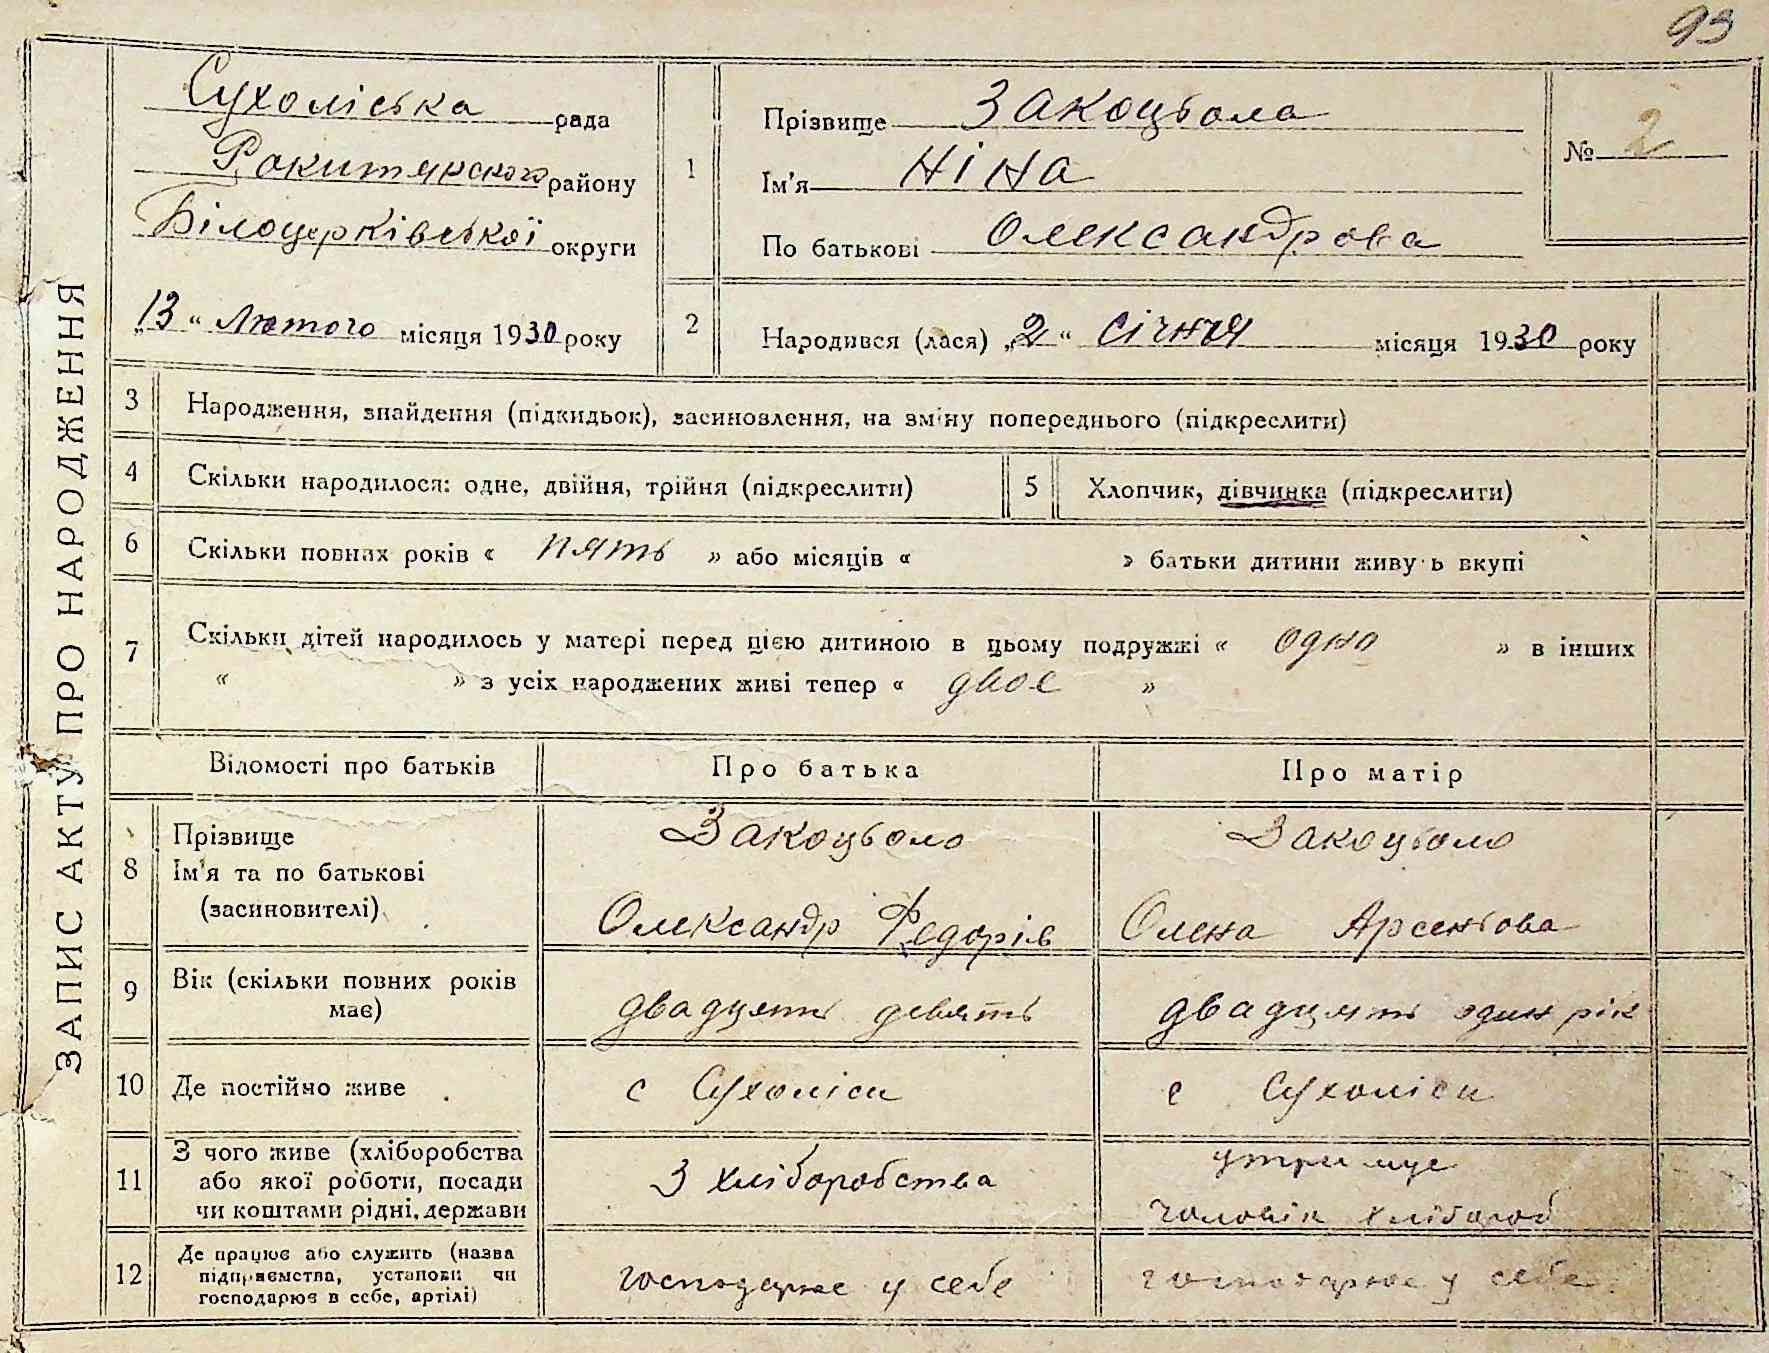 93
ЗАПИС АКТУ ПРО НАРОДЖЕННЯ
Сухоліська рада
Рокитянского району
Білоцерківської округи
„13“ Лютого місяця 1930 року
1
Прізвище Закоцьола
Ім'я Ніна
По батькові Олександрова
№ 2
2
Народився (лася) „2“ січня місяця 1930 року
3 Народження, знайдення (підкидьок), засиновлення, на зміну попереднього (підкреслити)
4 Скільки народилося: одне, двійня, трійня (підкреслити)
5 Хлопчик, дівчинка (підкреслити)
6 Скільки повних років « пять » або місяців « » батьки дитини живуть вкупі
7 Скільки дітей народилось у матері перед цією дитиною в цьому подружжі « одно » в інших
« » з усіх народжених живі тепер « двоє »
Відомості про батьків Про батька Про матір
8 Прізвище
Ім'я та по батькові
(засиновителі)
Закоцьоло
Олександр Федорів
Закоцьоло
Олена Арсентова
9 Вік (скільки повних років
має)
двадцять девять
двадцять один рік
10 Де постійно живе
с Сухоліси
с Сухоліси
11 З чого живе (хліборобства
або якої роботи, посади
чи коштами рідні, держави
З хліборобства
утримує
чоловік хлібороб
12 Де працює або служить (назва
підприємства, установи чи
господарює в себе, артілі)
господарює у себе
господарює у себе